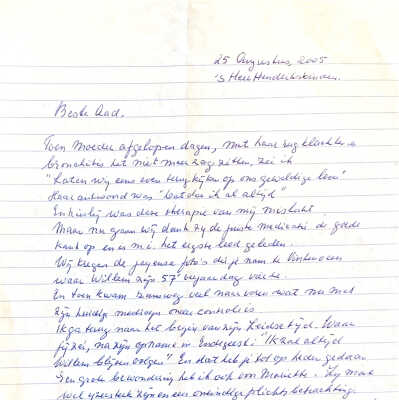 25 Augustus, 2005
's Heer Hendrikskinderen.
Beste Aad.
Toen Moeder afgelopen dagen, met haar rug klachten en
bronchitis het niet meer zag zitten, zei ik
"Laten wij eens even terugkijken op ons geweldige leven"
Haar antwoord was "dat doe ik al altijd"
En hierbij was deze therapie van mij mislukt.
Maar nu gaan wij dank zij de juiste medicatie de goede
kant op en is m.i. het ergste leed geleden.
Wij kregen de joyeuse foto's die je nam te
waar Willem zijn 57e verjaardag vierde.
En toen kwam zeer veel naar voren wat nu met
zijn medicijn en controles
Ik ga terug naar het begin van zijn Leidse tijd. Waar
jij zei, na zijn opname in Endegeest: "Ik zal altijd
Willem blijven volgen". En dat heb je tot op heden gedaan.
Een grote bewondering heb ik ook voor. Zij moet
wel ijzersterk zijn en een oneindige plichtsbetrachting